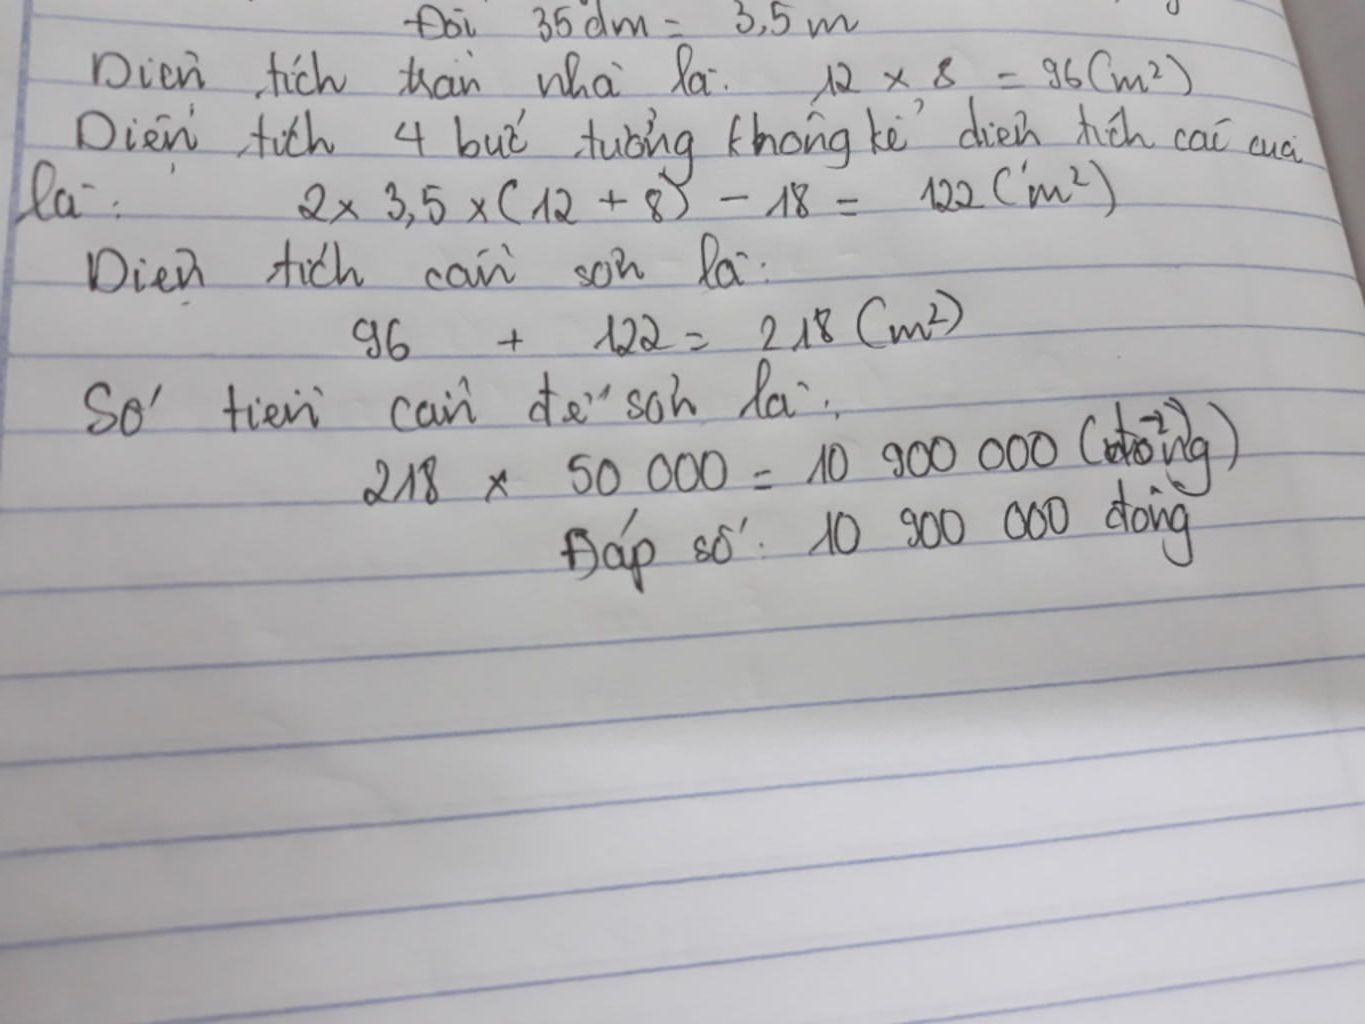 Đổi 35dm = 3,5m
Diện tích trần nhà là: 12 × 8 = 96 (m²)
Diện tích 4 bức tường không kể diện tích các cửa
là: 2 × 3,5 × (12 + 8) - 18 = 122 (m²)
Diện tích cần sơn là:
96 + 122 = 218 (m²)
Số tiền cần để sơn là:
218 × 50 000 = 10 900 000 (đồng)
Đáp số: 10 900 000 đồng